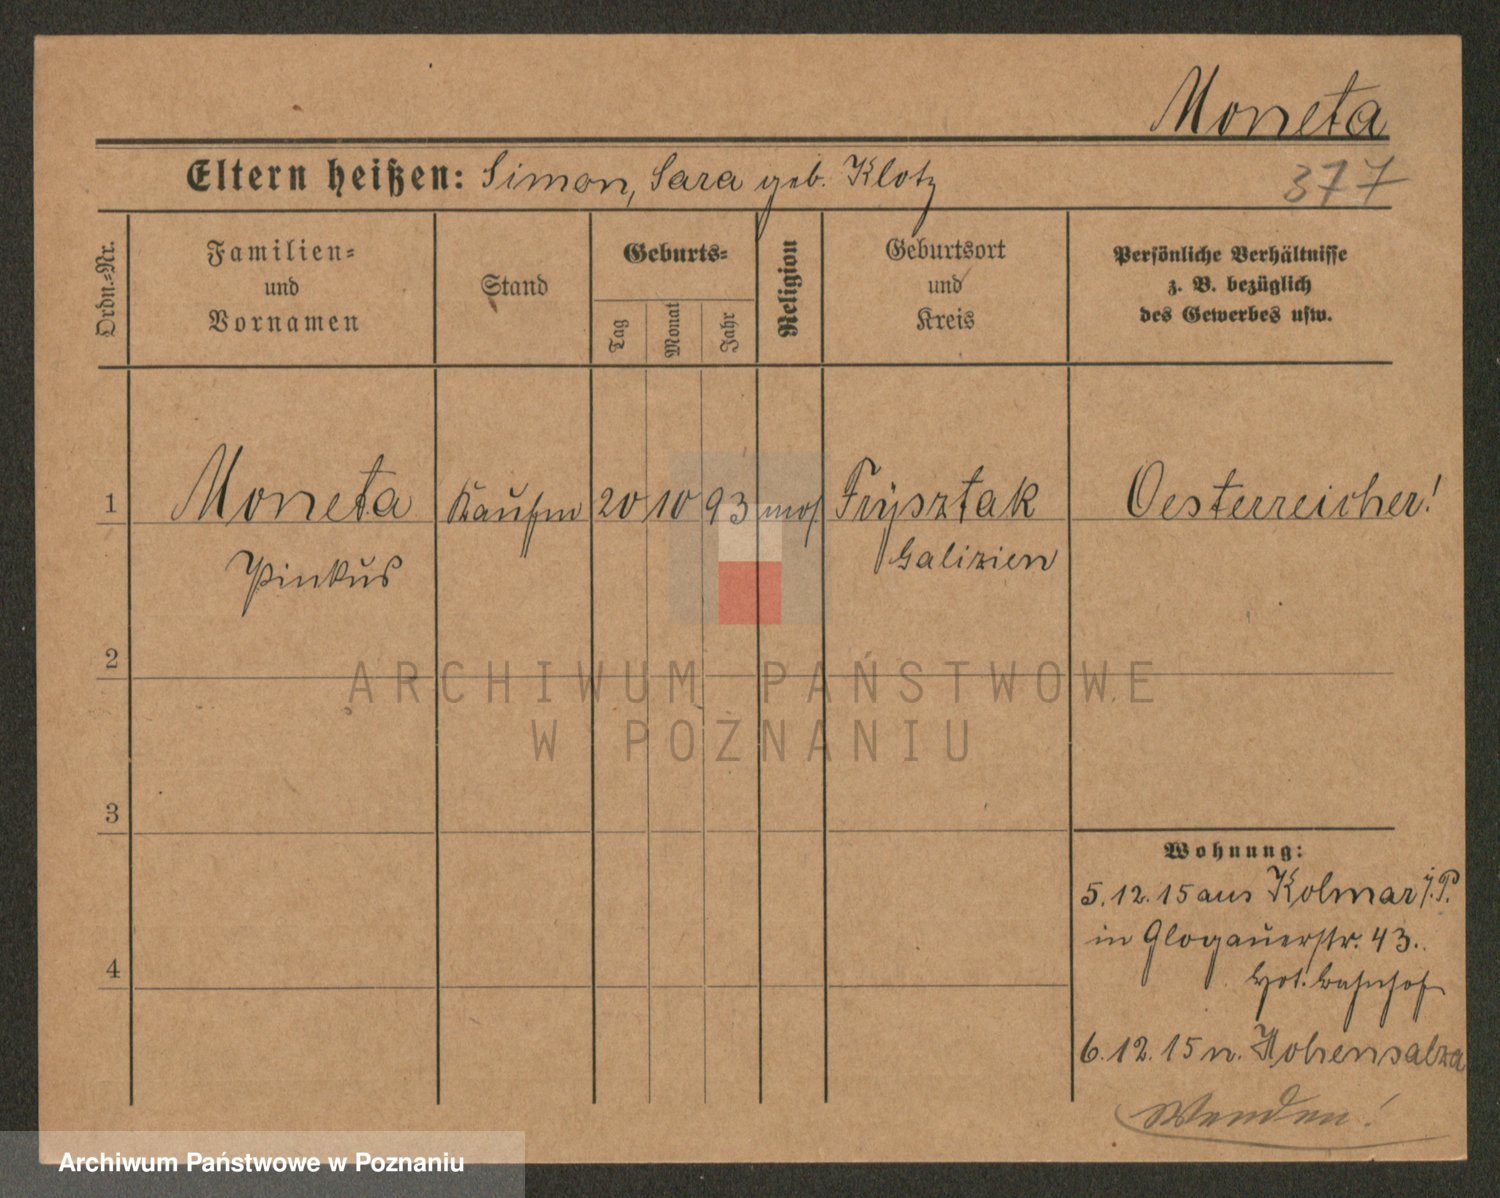 Moneta
Eltern heißen: Simon, Sara geb. Klotz
377
Ordn.-Nr.
Familien-
und
Vornamen
Stand
Geburts-
Tag
Monat
Jahr
Religion
Geburtsort
und
Kreis
Persönliche Verhältnisse
z. B. bezüglich
des Gewerbes usw.
1 Moneta Kaufm 20 10 93 mos Frysztak Oesterreicher!
Pinkus Galizien
2
ARCHIWUM PAŃSTWOWE
W POZNANIU
3
Wohnung:
5.12.15 aus Kolmar i. P.
in Glogauerstr. 43.
4
Hot. Bahnhof
6.12.15 n. Hohensalza
Wenden!
Archiwum Państwowe w Poznaniu